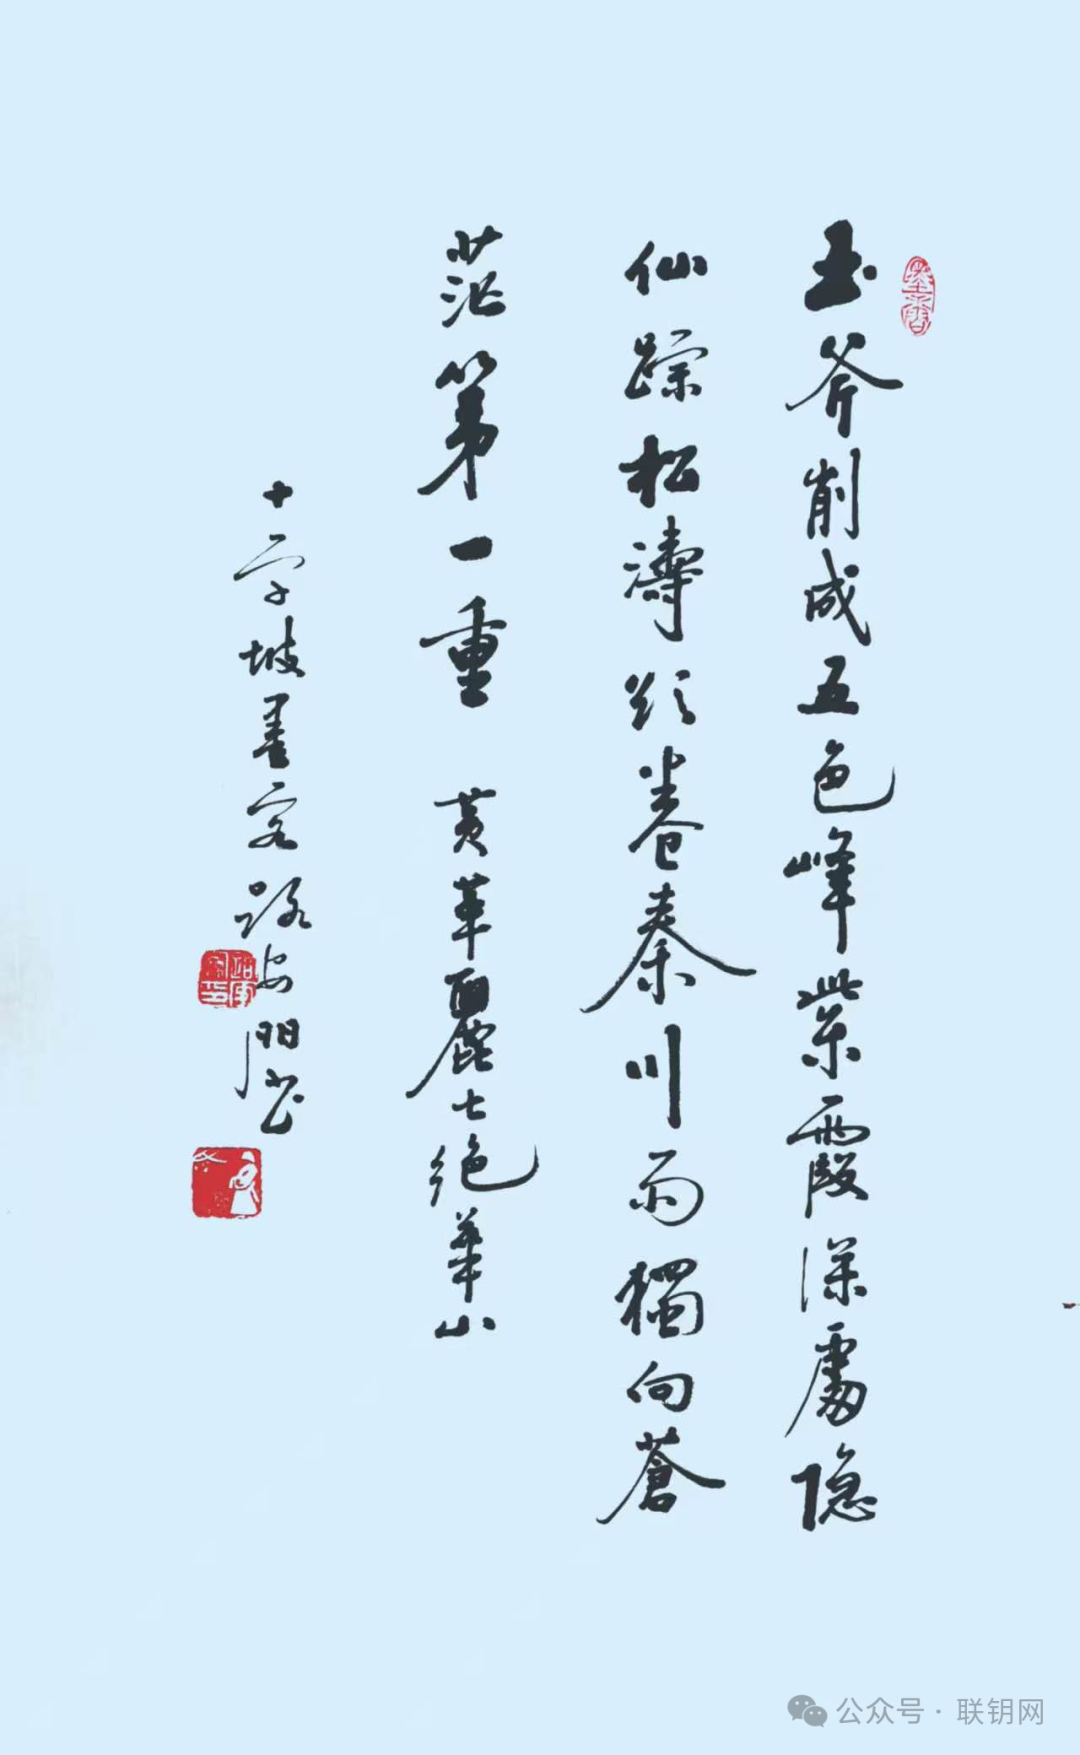 玉斧削成五色峰紫霞深處隐
仙踪松濤欲卷秦川雨獨向蒼
茫第一重 黄華麗七绝華山
十字坡墨客路安門书
公众号 · 联钥网